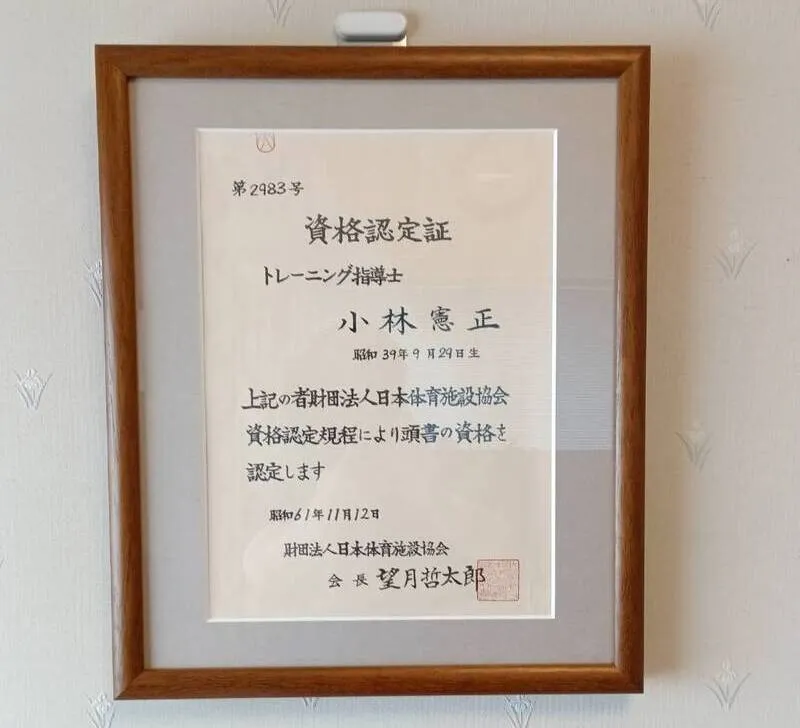 第2983号
資格認定証
トレーニング指導士
小林憲正
昭和39年9月29日生
上記の者財団法人日本体育施設協会
資格認定規程により頭書の資格を
認定します
昭和61年11月12日
財団法人日本体育施設協会
会長 望月哲太郎